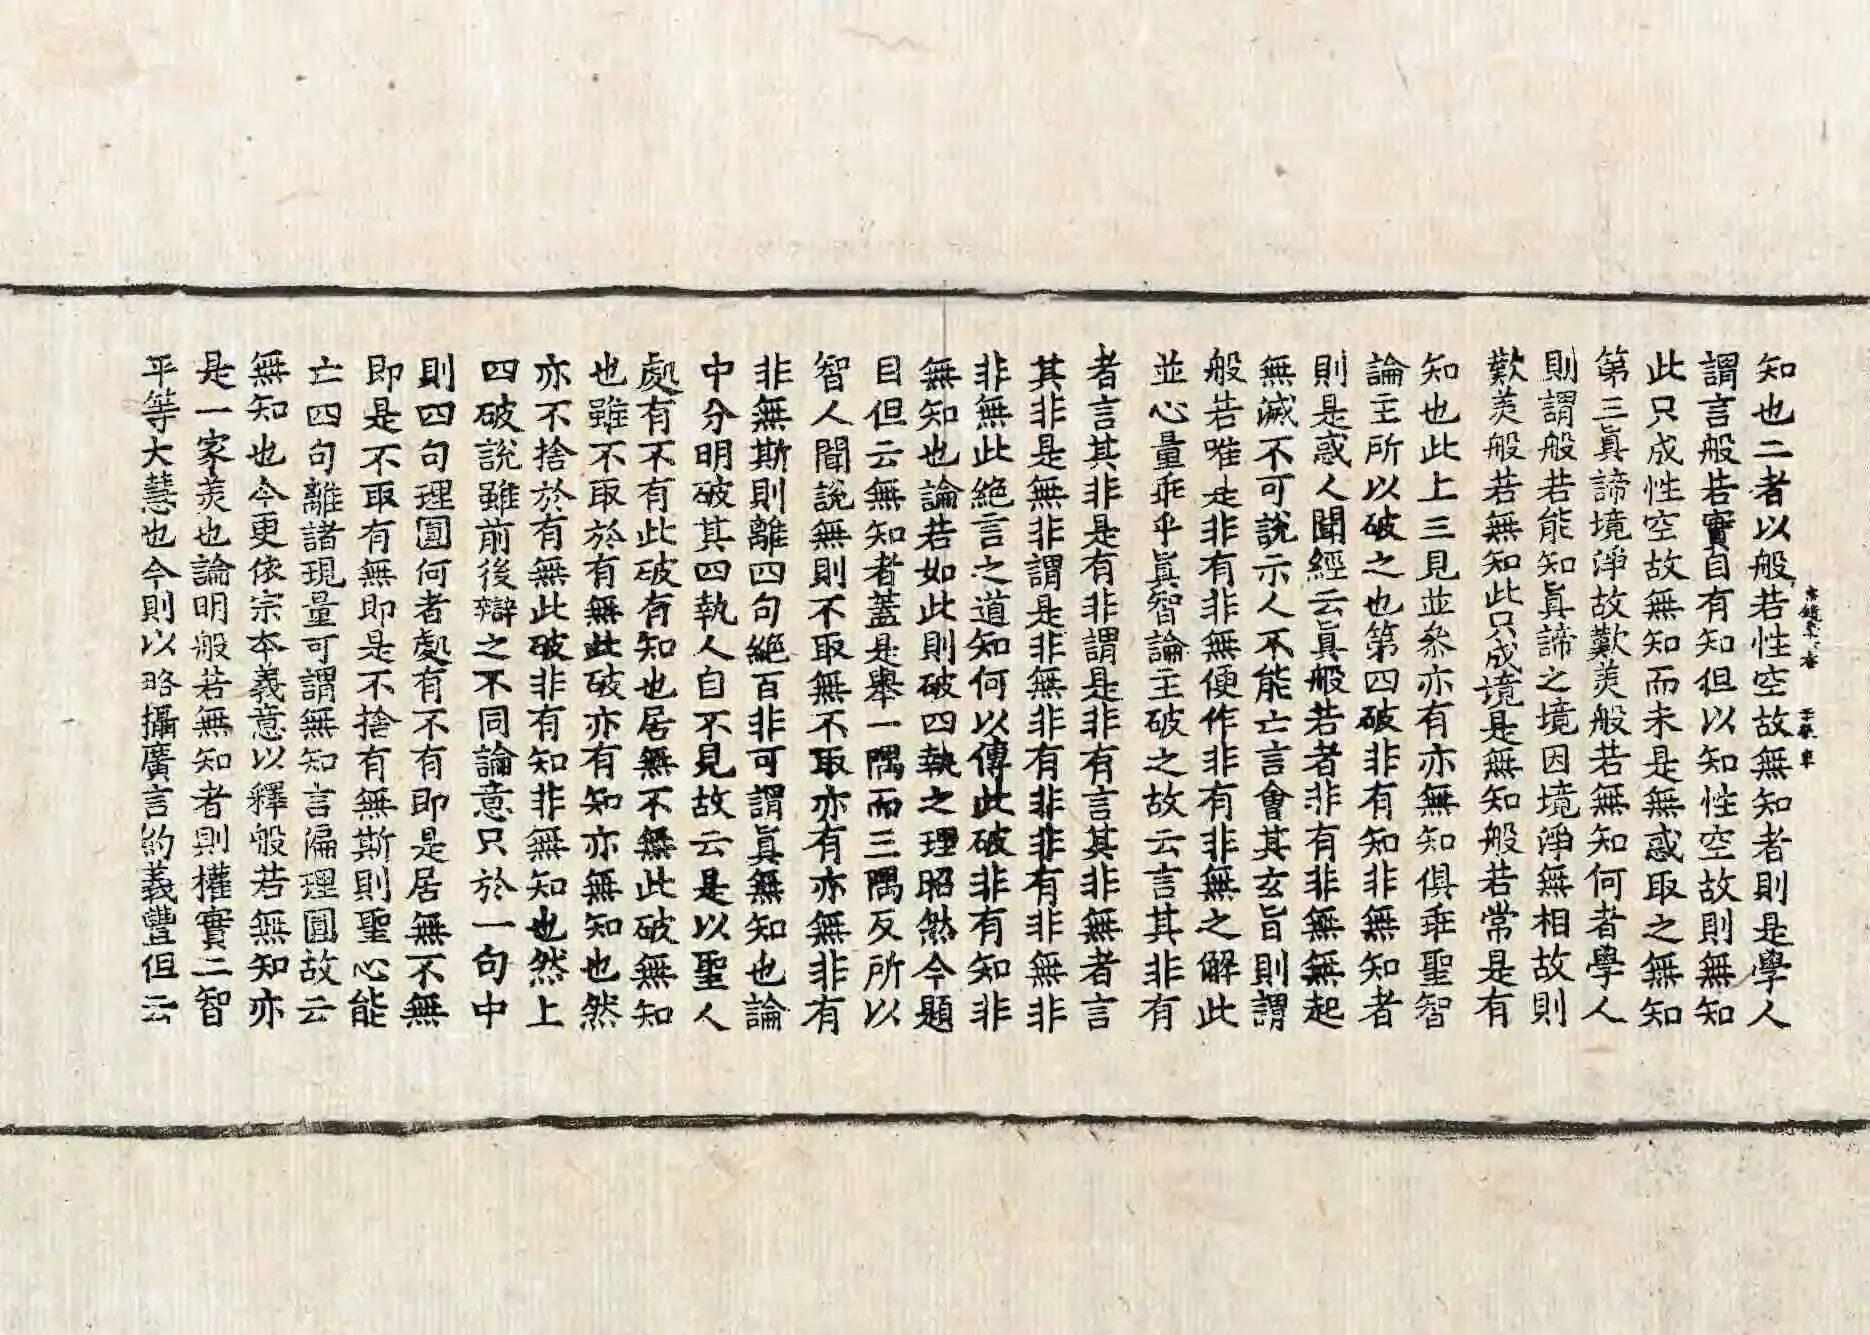 知也二者以般若性空故無知者則是學人
謂言般若實自有知但以知性空故則無知
此只成性空故無知而未是無惑取之無知
第三眞諦境淨故歎羙般若無知何者學人
則謂般若能知眞諦之境因境淨無相故則
歎羙般若無知此只成境是無知般若常是有
知也此上三見並叅亦有亦無知俱乖聖智
論主所以破之也第四破非有知非無知者
則是惑人聞經云眞般若者非有非無無起
無滅不可說示人不能亡言會其玄旨則謂
般若唯是非有非無便作非有非無之解此
並心量乖乎眞智論主破之故云言其非有
者言其非是有非謂是非有言其非無者言
其非是無非謂是非無非有非非有非無非
非無此絶言之道知何以傳此破非有知非
無知也論若如此則破四執之理昭然今題
目但云無知者蓋是舉一隅而三隅反所以
智人聞說無則不取無不取亦有亦無非有
非無斯則離四句絶百非可謂眞無知也論
中分明破其四執人自不見故云是以聖人
處有不有此破有知也居無不無此破無知
也雖不取於有無此破亦有知亦無知也然
亦不捨於有無此破非有知非無知也然上
四破說雖前後辯之不同論意只於一句中
則四句理圓何者處有不有即是居無不無
即是不取有無即是不捨有無斯則聖心能
亡四句離諸現量可謂無知言偏理圓故云
無知也今更依宗本義意以釋般若無知亦
是一家羙也論明般若無知者則權實二智
平等大慧也今則以略攝廣言約義豐但云